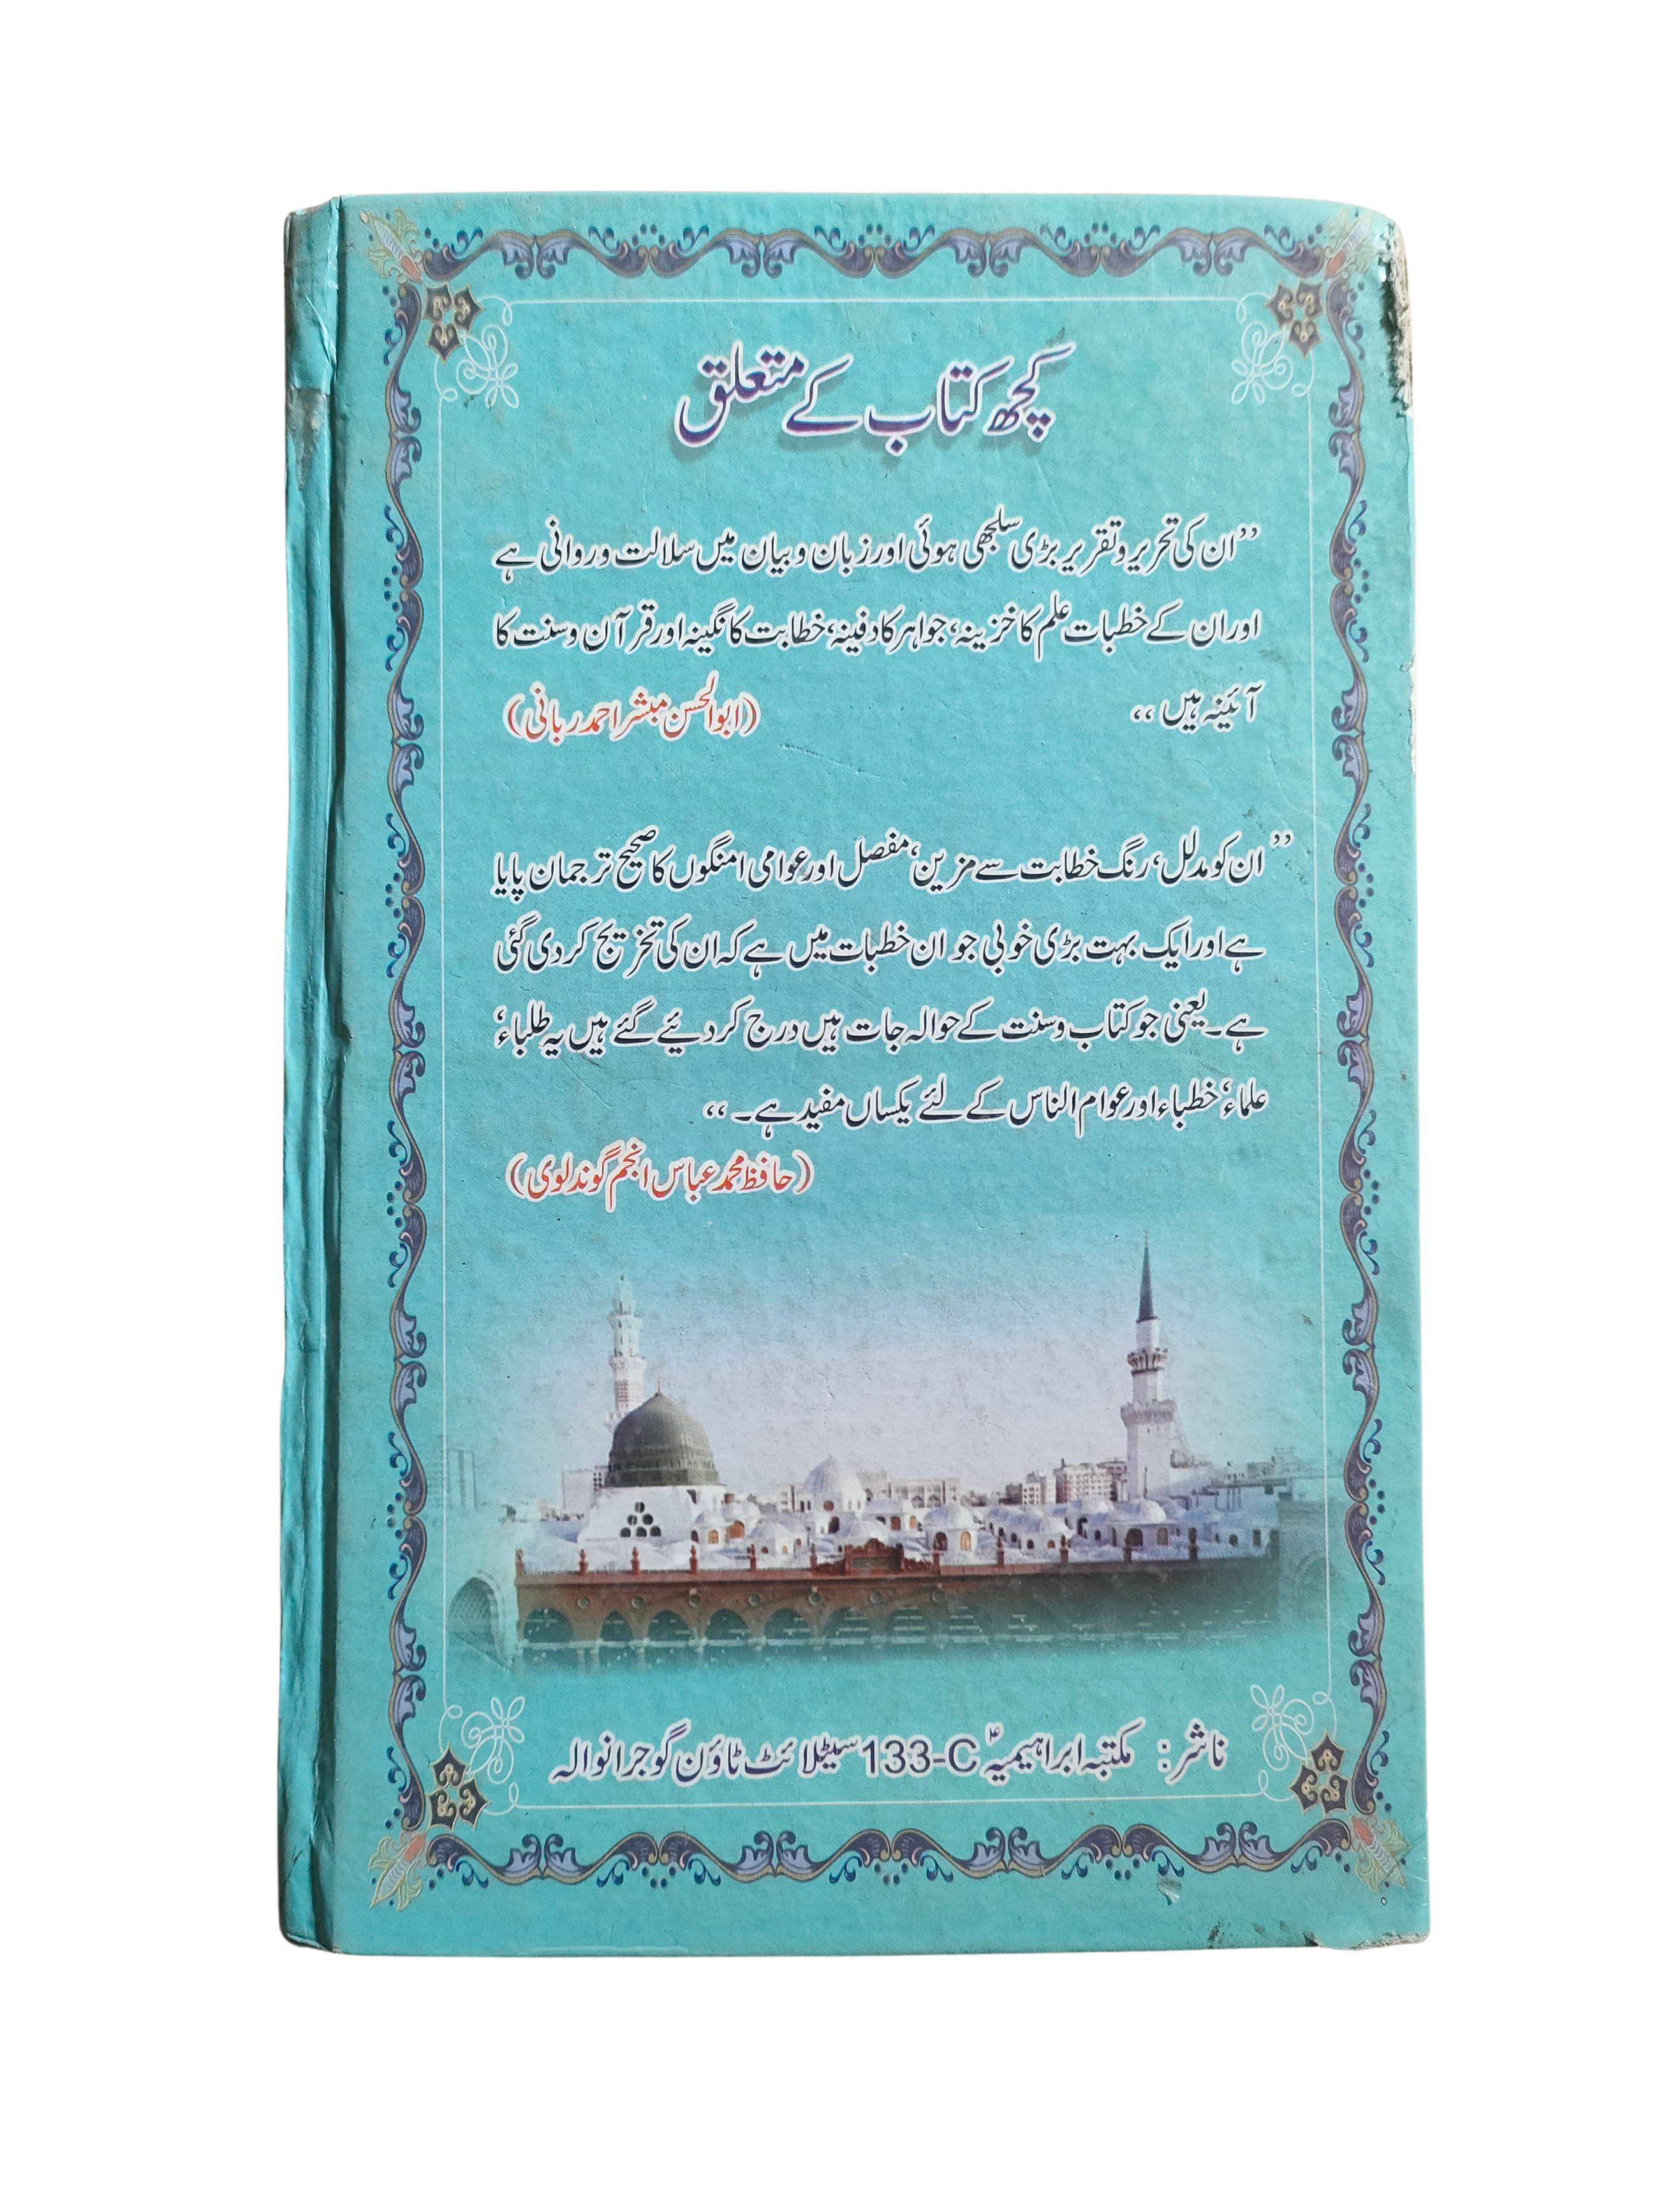 کچھ کتاب کے متعلق
”ان کی تحریر و تقریر بڑی سلجھی ہوئی اور زبان و بیان میں سلالت و روانی ہے
اور ان کے خطبات علم کا خزینہ، جواہر کا دفینہ، خطابت کا نگینہ اور قرآن و سنت کا
آئینہ ہیں ،،
(ابوالحسن مبشر احمد ربانی)
”ان کو مدلل، رنگ خطابت سے مزین، مفصل اور عوامی امنگوں کا صحیح ترجمان پایا
ہے اور ایک بہت بڑی خوبی جو ان خطبات میں ہے کہ ان کی تخریج کر دی گئی
ہے۔ یعنی جو کتاب و سنت کے حوالہ جات ہیں درج کر دئیے گئے ہیں یہ طلباء،
علماء، خطباء اور عوام الناس کے لئے یکساں مفید ہے۔ ،،
(حافظ محمد عباس انجم گوندلوی)
ناشر: مکتبہ ابراہیمیہؑ 133-C سیٹلائٹ ٹاؤن گوجرانوالہ